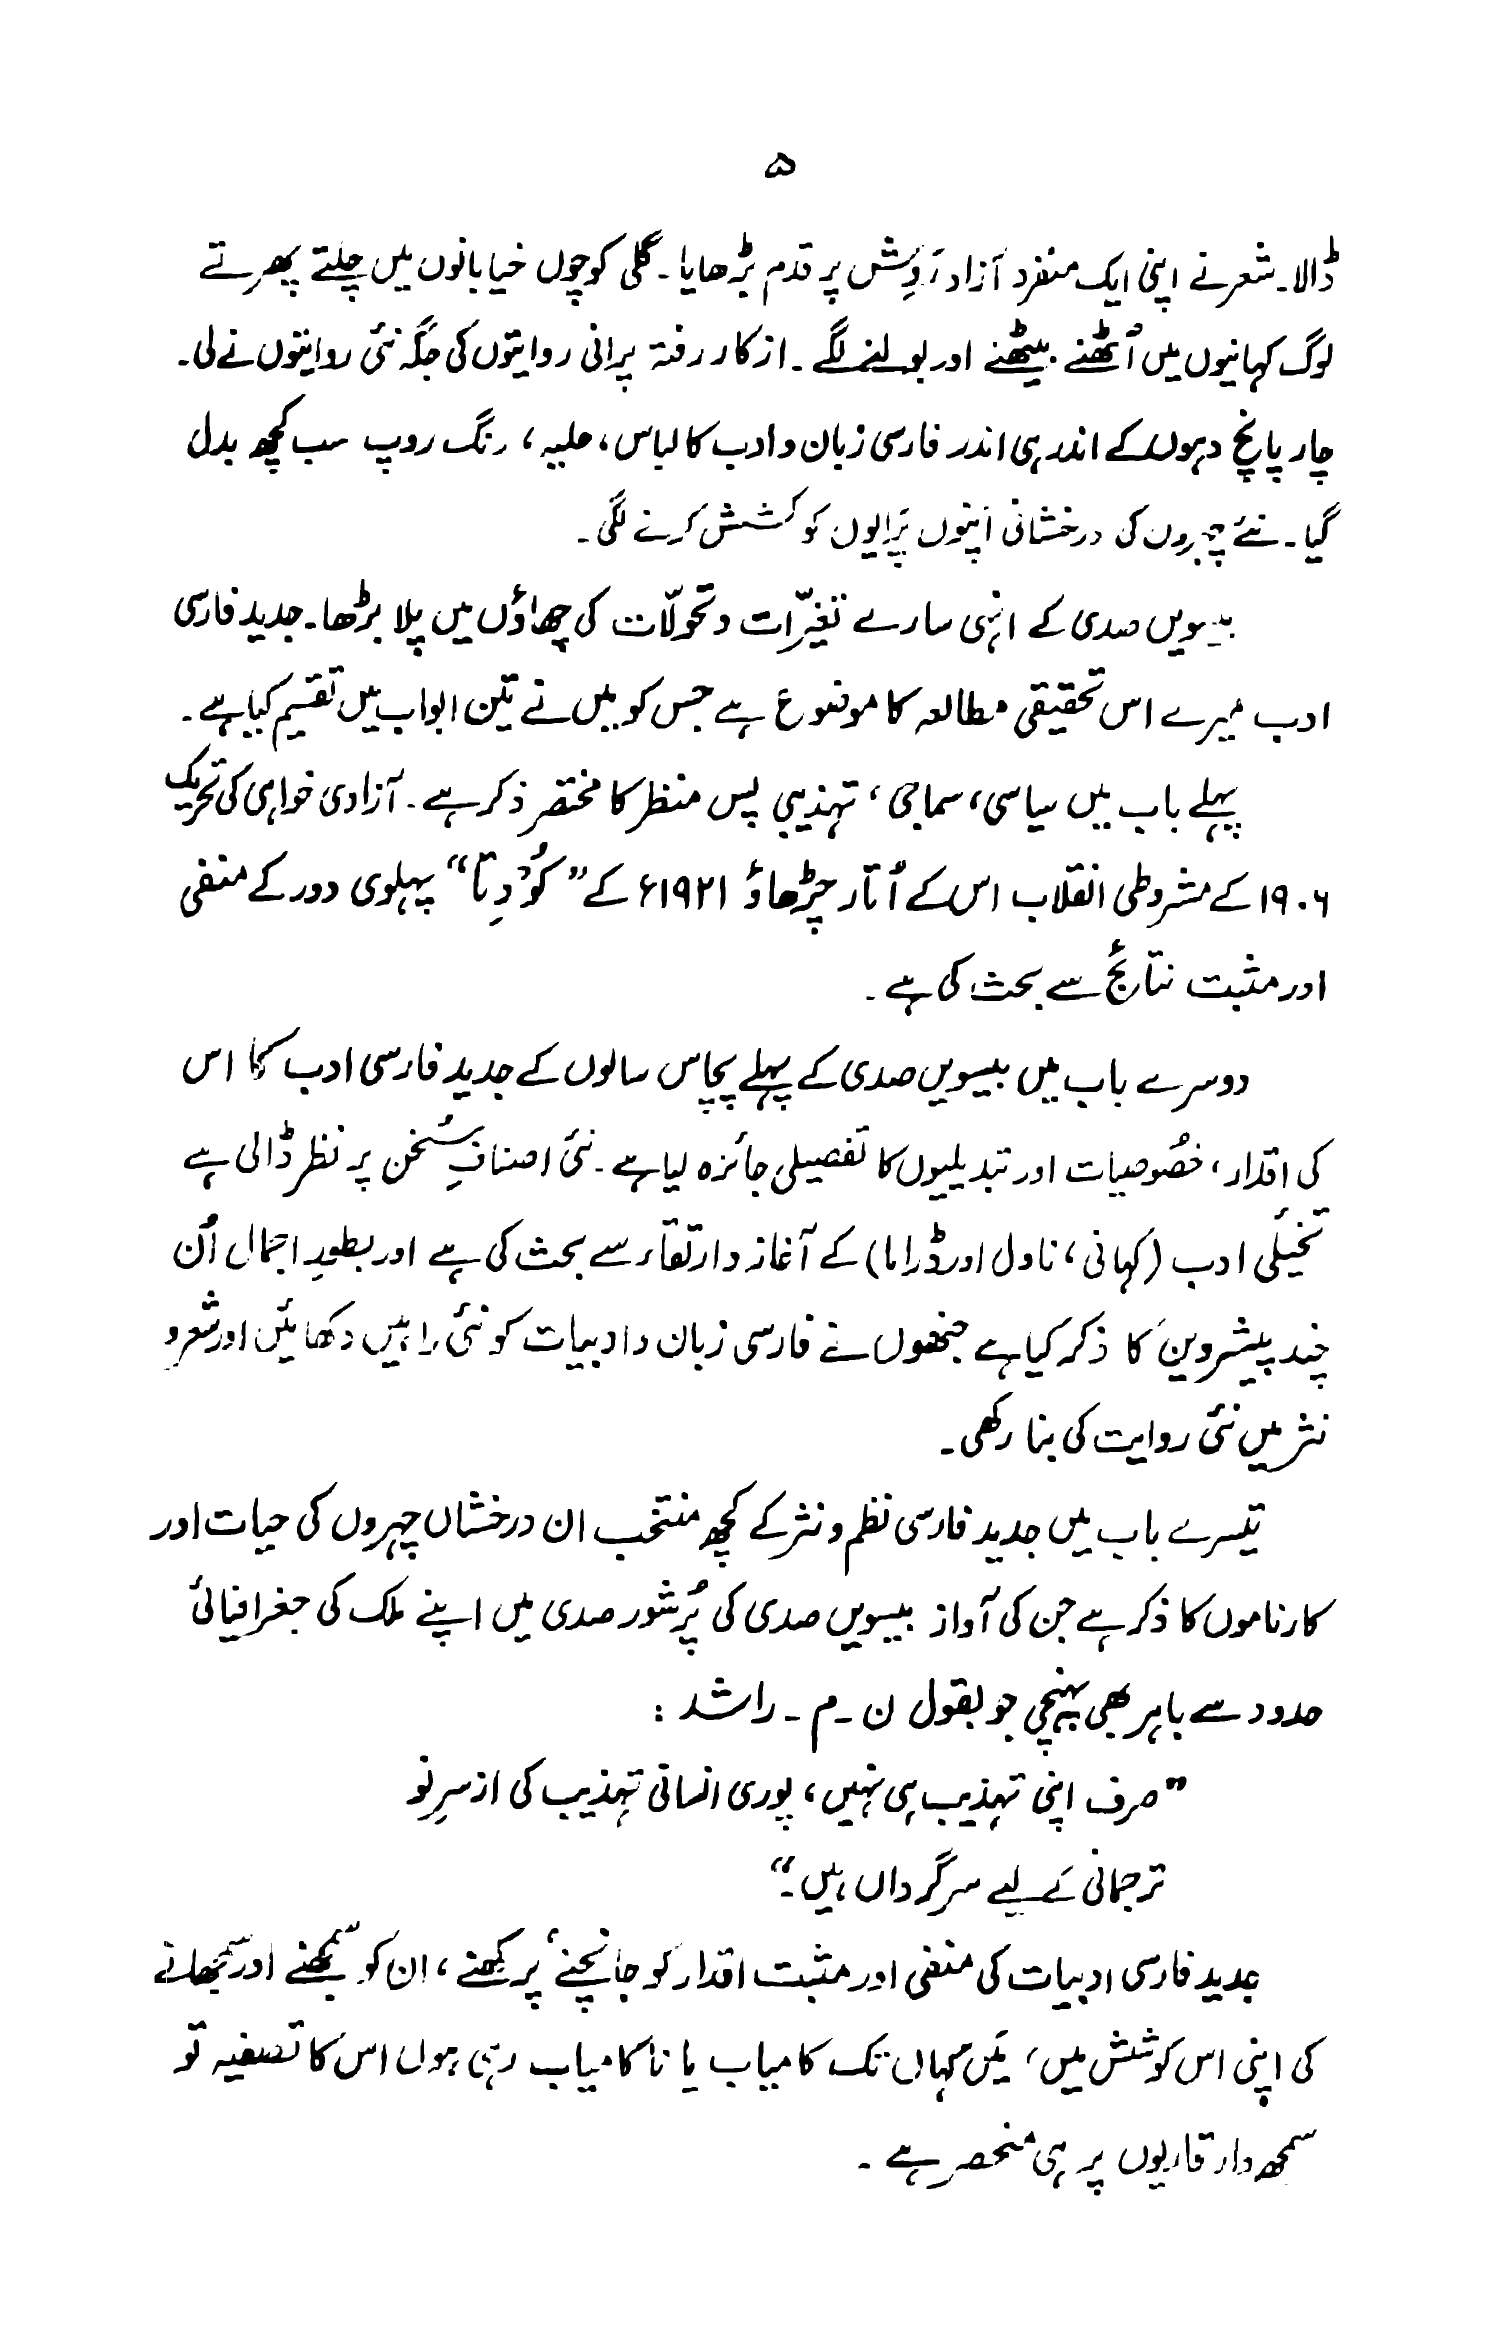 ۵
ڈالا۔ شعر نے اپنی ایک منفرد آزاد رَوِش پر قدم بڑھایا۔ گلی کوچوں خیابانوں میں چلتے پھرتے
لوگ کہانیوں میں اُٹھنے بیٹھنے اور بولنے لگے۔ از کار رفتہ پرانی روایتوں کی جگہ نئی روایتوں نے لی۔
چار پانچ دہوں کے اندر ہی اندر فارسی زبان و ادب کا لباس، حلیہ، رنگ روپ سب کچھ بدل
گیا۔ نئے چہروں کی درخشانی اَپنوں پَرایوں کو کشش کرنے لگی۔
بیسویں صدی کے انہی سارے تغیّرات و تحوّلات کی چھاؤں میں پلا بڑھا۔ جدید فارسی
ادب میرے اس تحقیقی مطالعہ کا موضوع ہے جس کو میں نے تین ابواب میں تقسیم کیا ہے۔
پہلے باب میں سیاسی، سماجی، تہذیبی پس منظر کا مختصر ذکر ہے۔ آزادی خواہی کی تحریک
۱۹۰۶ کے مشروطی انقلاب اس کے اُتار چڑھاؤ ۱۹۲۱ء کے ”کُودِتا“ پہلوی دور کے منفی
اور مثبت نتائج سے بحث کی ہے۔
دوسرے باب میں بیسویں صدی کے پہلے پچاس سالوں کے جدید فارسی ادب کا اس
کی اقدار، خصُوصیات اور تبدیلیوں کا تفصیلی جائزہ لیا ہے۔ نئی اصنافِ سُخن پر نظر ڈالی ہے
تخیّلی ادب (کہانی، ناول اور ڈراما) کے آغاز و ارتقاء سے بحث کی ہے اور بطورِ اجمال اُن
چند پیشروین کا ذکر کیا ہے جنھوں نے فارسی زبان و ادبیات کو نئی راہیں دکھائیں اور شعر و
نثر میں نئی روایت کی بنا رکھی۔
تیسرے باب میں جدید فارسی نظم و نثر کے کچھ منتخب ان درخشاں چہروں کی حیات اور
کارناموں کا ذکر ہے جن کی آواز بیسویں صدی کی پُرشور صدی میں اپنے ملک کی جغرافیائی
حدود سے باہر بھی پہنچی جو بقول ن ۔م۔ راشد :
”صرف اپنی تہذیب ہی نہیں، پوری انسانی تہذیب کی از سرِ نو
ترجمانی کے لیے سرگرداں ہیں۔“
جدید فارسی ادبیات کی منفی اور مثبت اقدار کو جانچنے، پرکھنے، ان کو سمجھنے اور سمجھانے
کی اپنی اس کوشش میں، مَیں کہاں تک کامیاب یا ناکامیاب رہی ہوں اس کا تصفیہ تو
سمجھ دار قاریوں پر ہی منحصر ہے۔